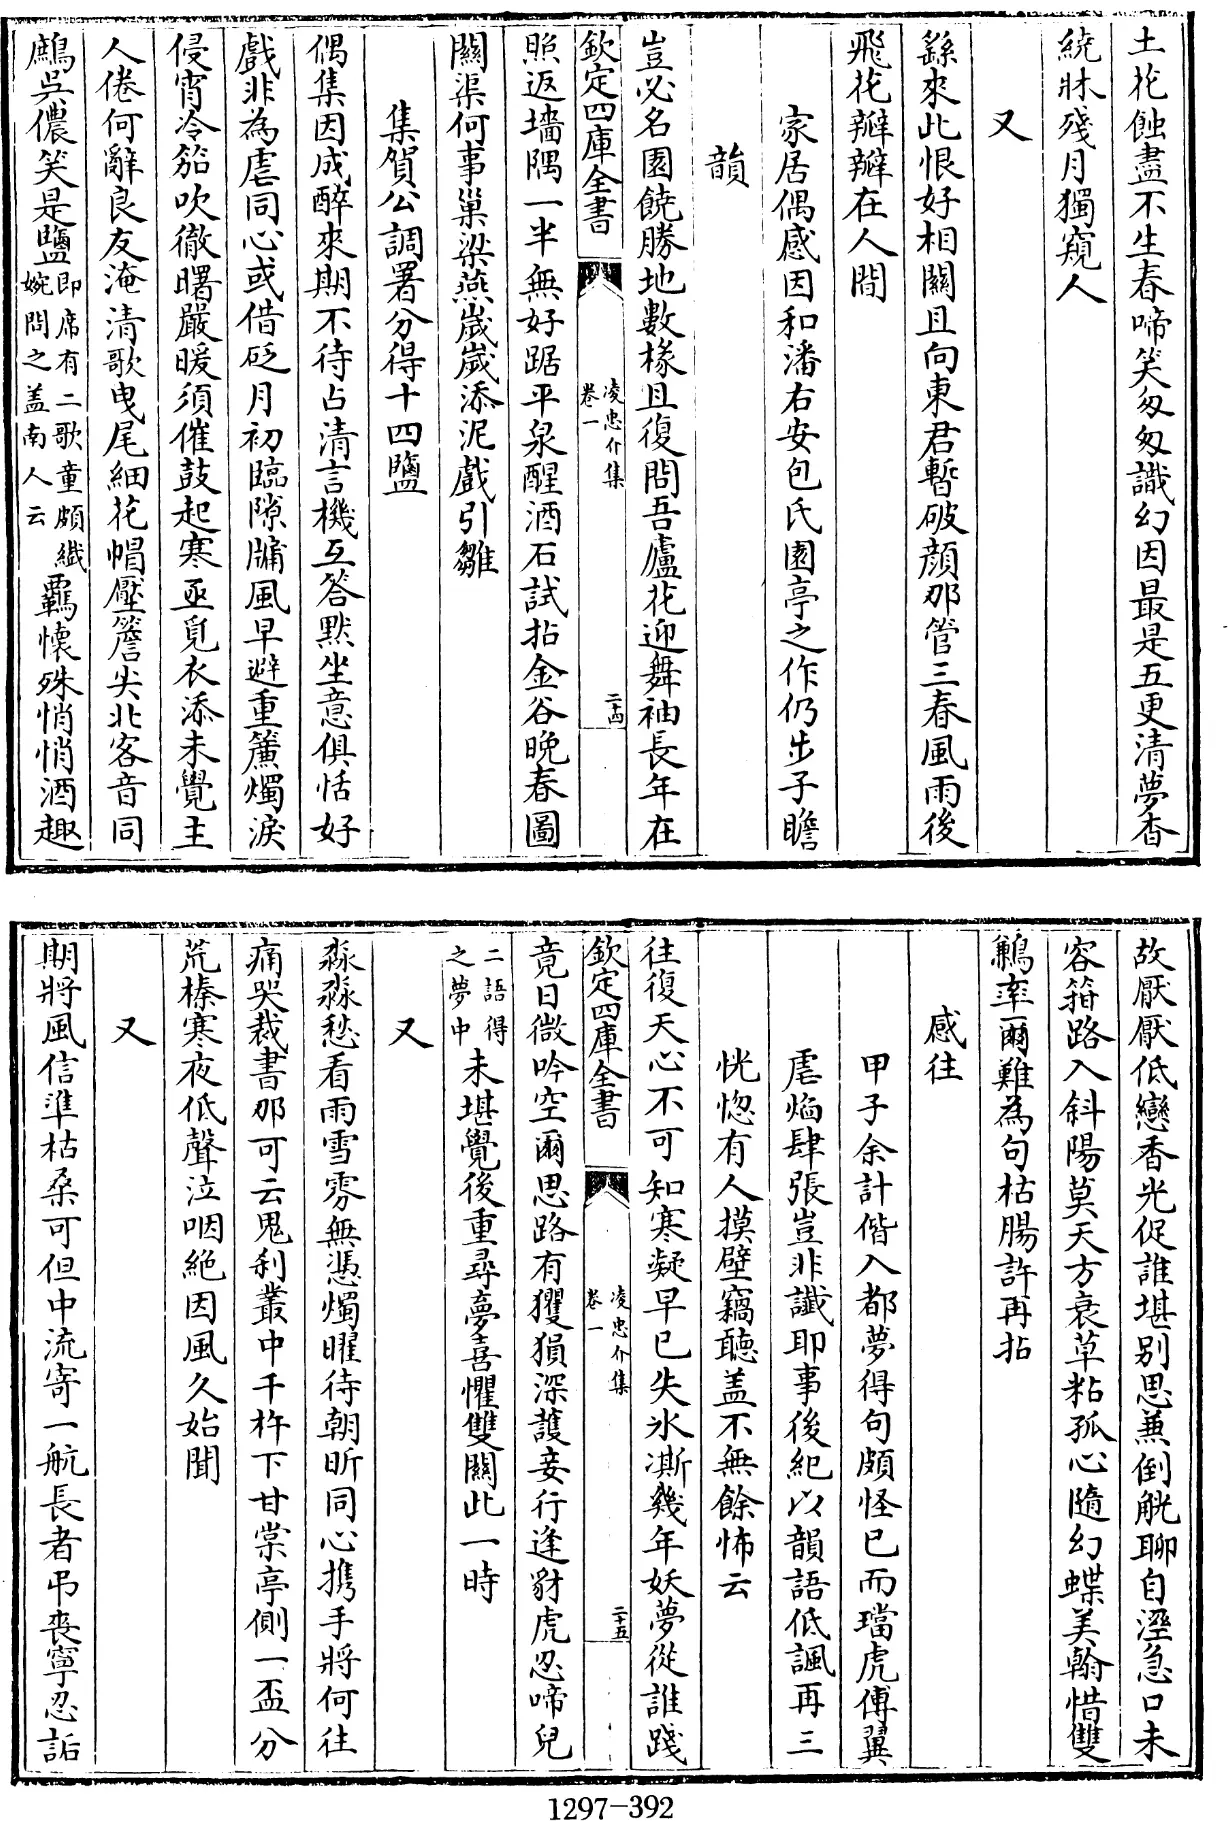 土花蝕盡不生春啼笑匆匆識幻因最是五更清夢杳
繞牀殘月獨窺人
又
繇來此恨好相關且向東君暫破顔那管三春風雨後
飛花瓣瓣在人間
家居偶感因和潘右安包氏園亭之作仍步子瞻
韻
豈必名園饒勝地數椽且復問吾廬花迎舞袖長年在
欽定四庫全書
凌忠介集
卷一
二十四
照返墻隅一半無好踞平泉醒酒石試拈金谷晚春圖
關渠何事巢梁燕嵗嵗添泥戲引雛
集賀公調署分得十四鹽
偶集因成醉來期不待占清言機互答黙坐意俱恬好
戲非為虐同心或借砭月初臨隙牖風早避重簾燭淚
侵宵冷笳吹徹曙嚴暖須催鼓起寒亟覓衣添未覺主
人倦何辭良友淹清歌曳尾細花帽壓簷尖北客音同
鷓吳儂笑是鹽即席有二歌童頗纎
婉問之盖南人云羈懷殊悄悄酒趣
故厭厭低戀香光促誰堪别思兼倒觥聊自溼急口未
容箝路入斜陽莫天方衰草粘孤心隨幻蝶美翰惜雙
鶼率爾難為句枯腸許再拈
感往
甲子余計偕入都夢得句頗怪已而璫虎傅翼
虐燄肆張豈非讖耶事後紀以韻語低諷再三
恍惚有人摸壁竊聽盖不無餘怖云
往復天心不可知寒凝早已失氷澌幾年妖夢從誰踐
欽定四庫全書
凌忠介集
卷一
二十五
竟日微吟空爾思路有玃狽深䕶妾行逢豺虎忍啼兒
二語得
之夢中未堪覺後重尋夢喜懼雙關此一時
又
淼淼愁看雨雪雰無憑燭曜待朝昕同心携手將何往
痛哭裁書那可云鬼刹叢中千杵下甘棠亭側一盃分
荒榛寒夜低聲泣咽絶因風久始聞
又
期將風信準枯桑可但中流寄一航長者弔喪寧忍詬
1297-392